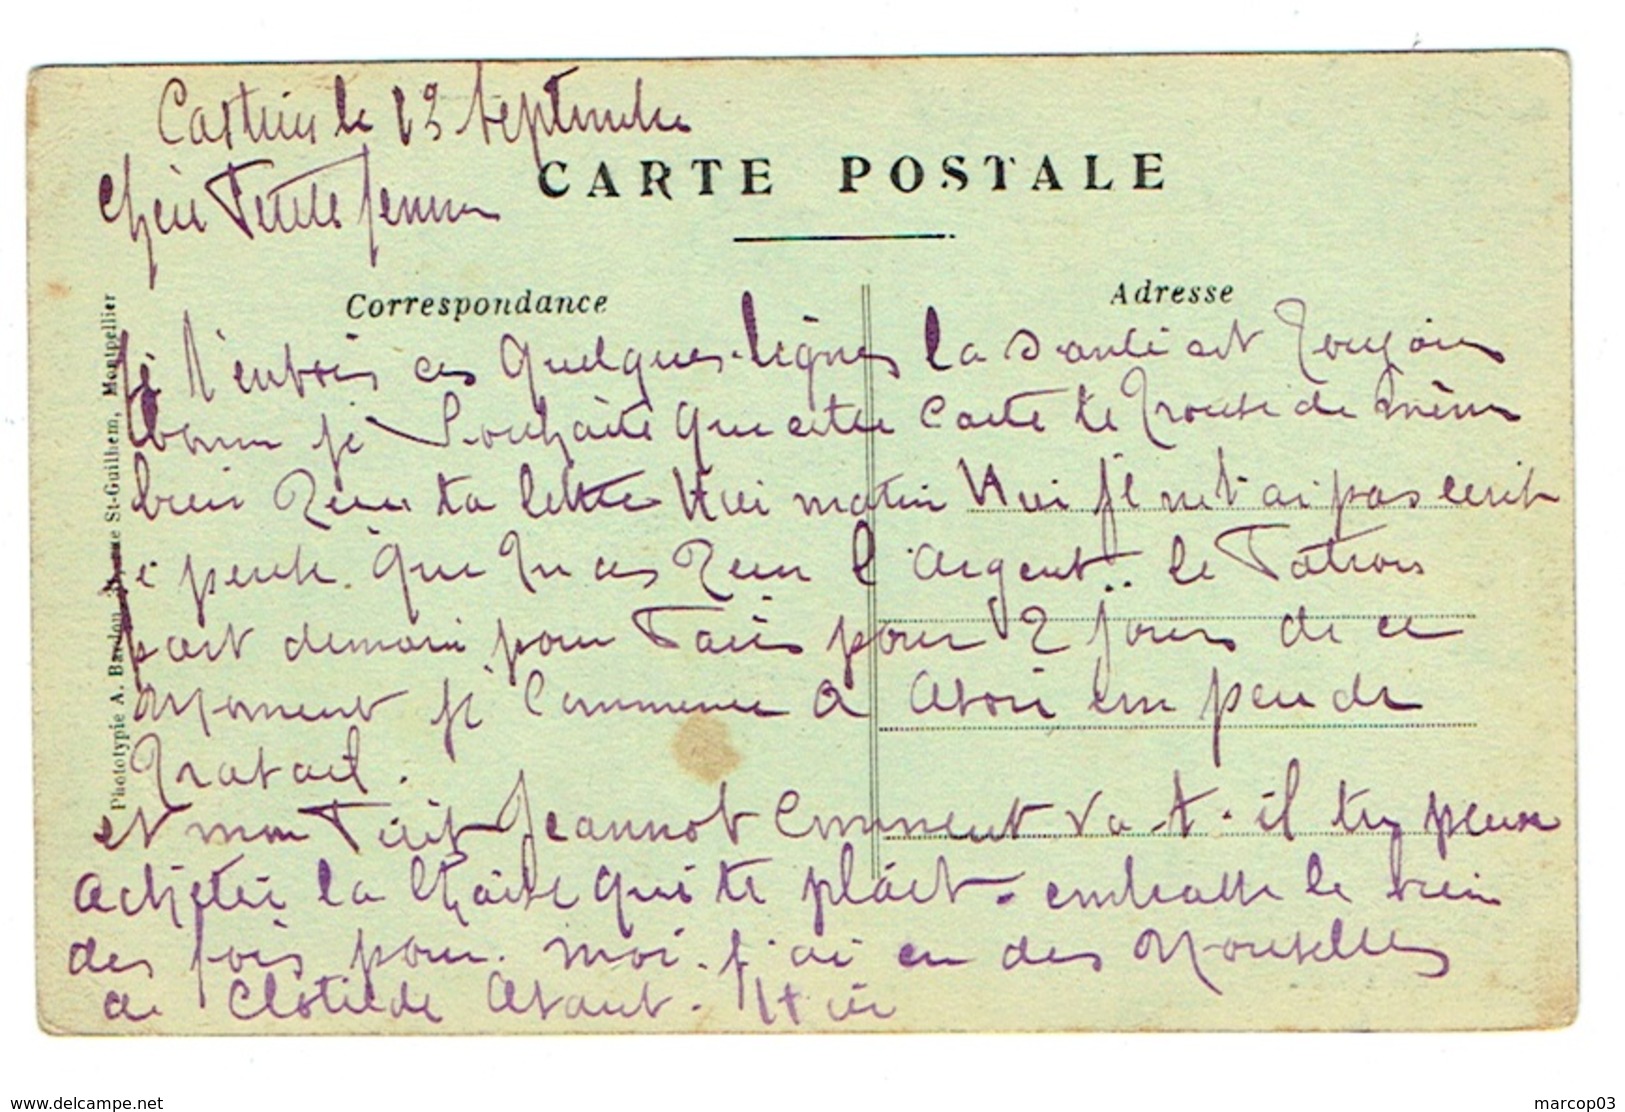 Castries le 13 Septembre
CARTE POSTALE
chère Petite femme
Correspondance
Adresse
Phototypie A. Bardou, rue St-Guilhem, Montpellier
je t'envois ces quelques lignes la Santé est toujours
bonne je Souhaite que cette carte te trouve de même
bien Reçu ta lettre Hier matin Hier je ne t'ai pas écrit
je pense que tu as Reçu l'argent.. le Patron
part demain pour Paris pour 2 jours de ce
Moment je Commence a Avoir un peu de
travail.
et mon Petit Jeannot Comment va-t-il tu peux
acheter la Chaise qui te plaît. embrasse le bien
des fois pour moi. j'ai eu des Nouvelles
de Clotilde Avant-Hier
www.delcampe.net
marcop03